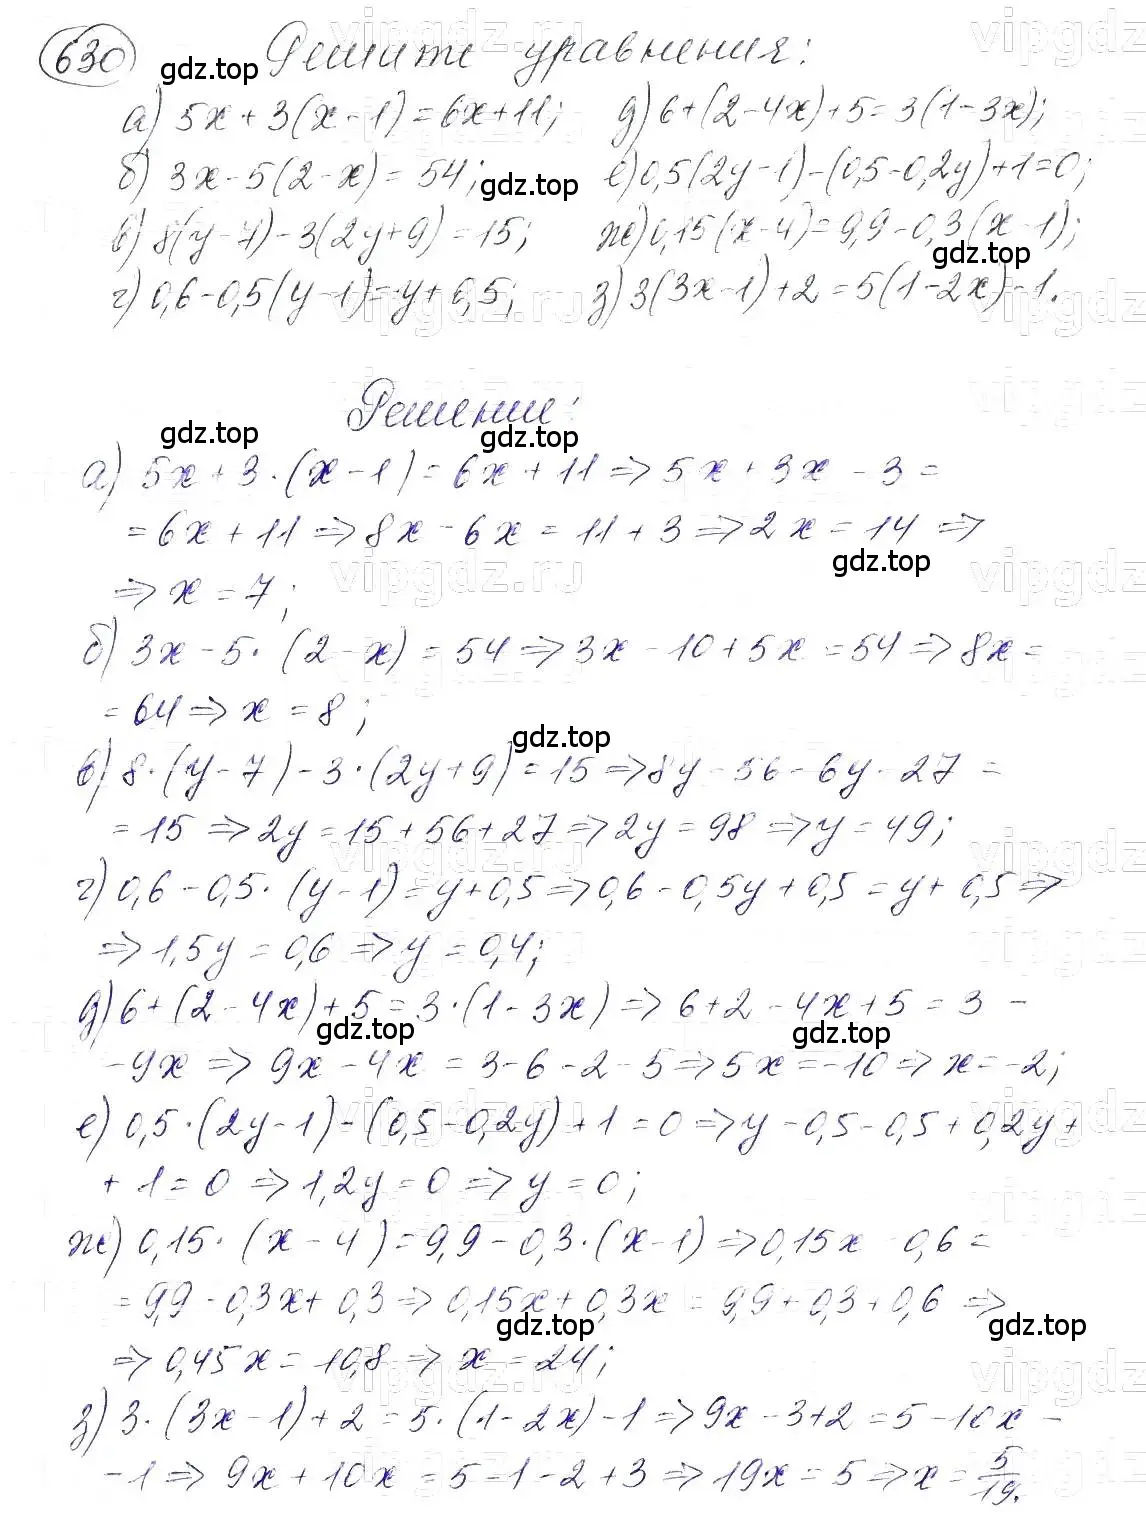 630 Решите уравнения:
а) 5x + 3(x - 1) = 6x + 11; д) 6 + (2 - 4x) + 5 = 3(1 - 3x);
б) 3x - 5(2 - x) = 54; е) 0,5(2y - 1) - (0,5 - 0,2y) + 1 = 0;
в) 8(y - 7) - 3(2y + 9) = 15; ж) 0,15(x - 4) = 9,9 - 0,3(x - 1);
г) 0,6 - 0,5(y - 1) = y + 0,5; з) 3(3x - 1) + 2 = 5(1 - 2x) - 1.
Решение:
а) 5x + 3 · (x - 1) = 6x + 11 => 5x + 3x - 3 =
= 6x + 11 => 8x - 6x = 11 + 3 => 2x = 14 =>
=> x = 7;
б) 3x - 5 · (2 - x) = 54 => 3x - 10 + 5x = 54 => 8x =
= 64 => x = 8;
в) 8 · (y - 7) - 3 · (2y + 9) = 15 => 8y - 56 - 6y - 27 =
= 15 => 2y = 15 + 56 + 27 => 2y = 98 => y = 49;
г) 0,6 - 0,5 · (y - 1) = y + 0,5 => 0,6 - 0,5y + 0,5 = y + 0,5 =>
=> 1,5y = 0,6 => y = 0,4;
д) 6 + (2 - 4x) + 5 = 3 · (1 - 3x) => 6 + 2 - 4x + 5 = 3 -
- 9x => 9x - 4x = 3 - 6 - 2 - 5 => 5x = -10 => x = -2;
е) 0,5 · (2y - 1) - (0,5 - 0,2y) + 1 = 0 => y - 0,5 - 0,5 + 0,2y +
+ 1 = 0 => 1,2y = 0 => y = 0;
ж) 0,15 · (x - 4) = 9,9 - 0,3 · (x - 1) => 0,15x - 0,6 =
= 9,9 - 0,3x + 0,3 => 0,15x + 0,3x = 9,9 + 0,3 + 0,6 =>
=> 0,45x = 10,8 => x = 24;
з) 3 · (3x - 1) + 2 = 5 · (1 - 2x) - 1 => 9x - 3 + 2 = 5 - 10x -
- 1 => 9x + 10x = 5 - 1 - 2 + 3 => 19x = 5 => x = 5/19.
gdz.top
gdz.top
gdz.top
gdz.top
gdz.top
gdz.top
gdz.top
gdz.top
gdz.top
gdz.top
gdz.top
vipgdz.ru